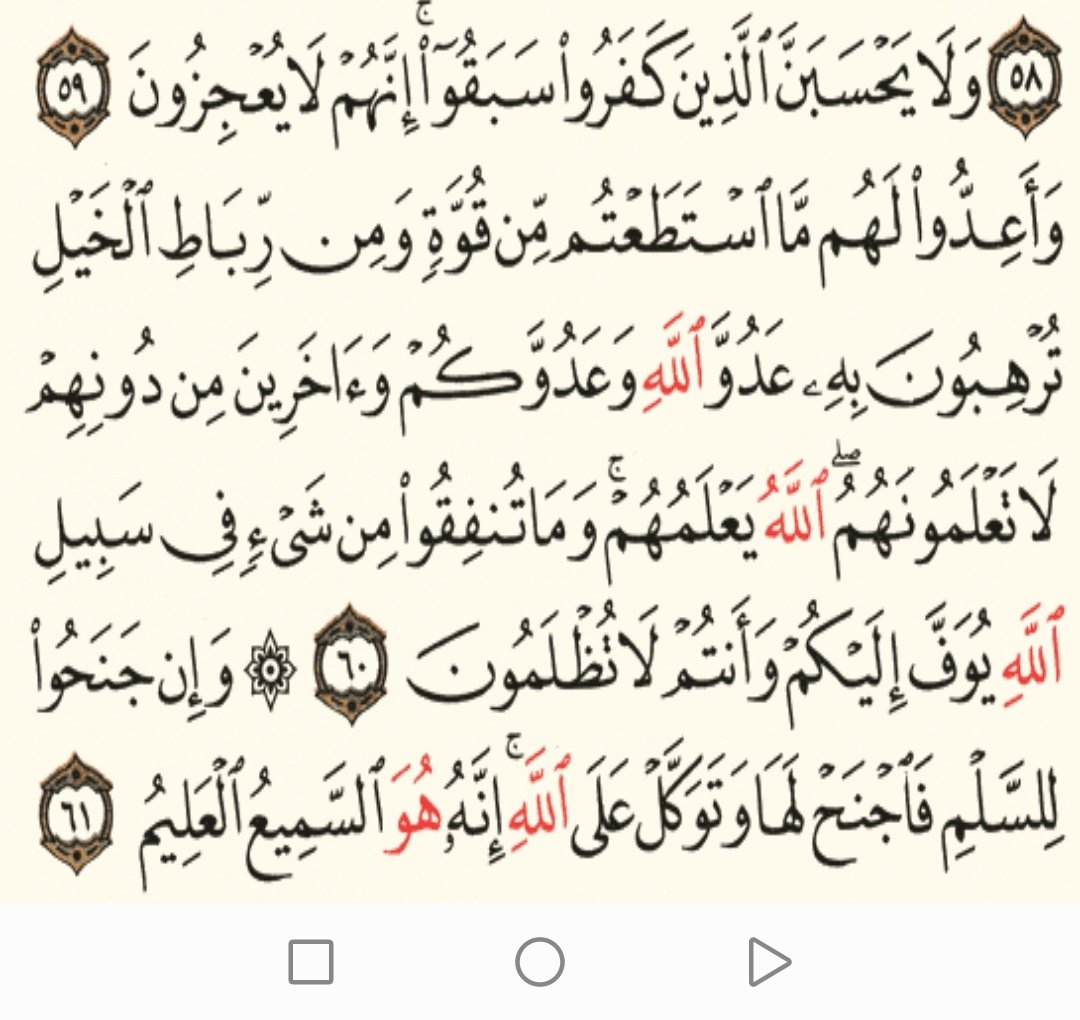 ٥٨ وَلَا يَحْسَبَنَّ ٱلَّذِينَ كَفَرُوا۟ سَبَقُوٓا۟ ۚ إِنَّهُمْ لَا يُعْجِزُونَ ٥٩
وَأَعِدُّوا۟ لَهُم مَّا ٱسْتَطَعْتُم مِّن قُوَّةٍ وَمِن رِّبَاطِ ٱلْخَيْلِ
تُرْهِبُونَ بِهِۦ عَدُوَّ ٱللَّهِ وَعَدُوَّكُمْ وَءَاخَرِينَ مِن دُونِهِمْ
لَا تَعْلَمُونَهُمُ ۖ ٱللَّهُ يَعْلَمُهُمْ ۚ وَمَا تُنفِقُوا۟ مِن شَىْءٍ فِى سَبِيلِ
ٱللَّهِ يُوَفَّ إِلَيْكُمْ وَأَنتُمْ لَا تُظْلَمُونَ ٦٠ ۞ وَإِن جَنَحُوا۟
لِلسَّلْمِ فَٱجْنَحْ لَهَا وَتَوَكَّلْ عَلَى ٱللَّهِ ۚ إِنَّهُۥ هُوَ ٱلسَّمِيعُ ٱلْعَلِيمُ ٦١